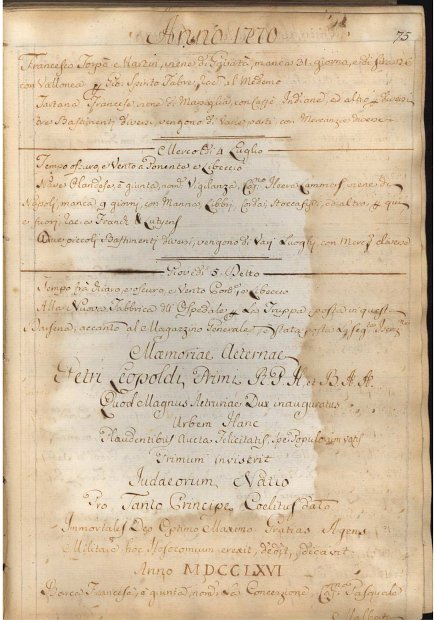 Anno 1770
75
Francesco Torpè e Martin, viene di Giaffa, manca 31. giorno, e di Brazzi
con Vallonea
Tartana Francese nom. di Marsiglia, con Caffè, Indiana, ed altro
tre Bastimenti diversi, vengono di Varie parti, con Mercanzie diverse
Mercoldì 4 Luglio
Tempo oscuro, e Vento a Ponente e Libeccio
Nave Olandese, è giunta, nom. Vigilanza, Cap.no Lammers, viene di
Napoli, manca 9 giorni, con Manna, Libbri, Corda, Stoccafisso, ed altro, qui
e fuori, Franck & Lutyens
Due piccoli Bastimenti diversi, vengono di Varj Luoghi, con Merci diverse
Giovedì 5 Detto
Tempo frà Chiaro, e oscuro, e Vento Libeccio
Alla Nuova Fabbrica dell Ospedale La Truppa posta in questa
Darsena, accanto al Magazino Generale, è Stata posta
Memoriae Aeternae
Petri Leopoldi, Primi, A. A.
Quod Magnus Aetruriae Dux inauguratus
Urbem Hanc
Plaudentibus Aucta Felicitatis, Spe Populorum votis
Primum inviserit
Iudaeorum Natio
Pro Tanto Principe Coelitus dato
Immortales Deo Optimo Maximo Gratias Agens
Militare hoc Nosocomium erexit, dedit, dicavit
Anno MDCCLXVI
Barca Francese, è giunta, nom. La Concezione, Cap.no Pasquale